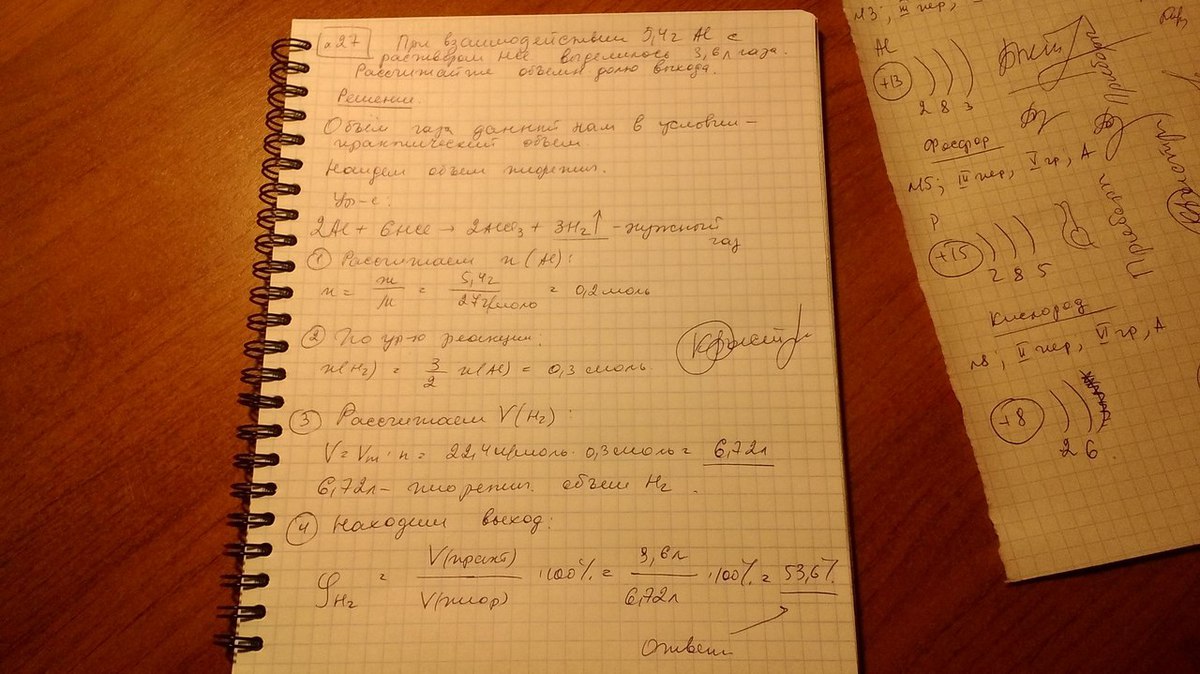 №27 При взаимодействии 5,4г Al с
раствором HCl выделилось 3,6 л газа.
Рассчитайте объемн. долю выхода.
Решение.
Объём газа данный нам в условии –
практический объем
Найдем объем теоретич.
Ур-е:
2Al + 6HCl → 2AlCl₃ + 3H₂↑ - нужный
газ
① Рассчитаем n (Al):
n = m/M = 5,4г/27г/моль = 0,2 моль
② По ур-ю реакции:
n(H₂) = 3/2 n(Al) = 0,3 моль
③ Рассчитаем V(H₂):
V = Vm · n = 22,4 л/моль · 0,3 моль = 6,72л
6,72л – теоретич. объем H₂.
④ Находим выход:
φH₂ = V(практ)/V(теор) · 100% = 3,6л/6,72л · 100% = 53,6%
Ответ
Al
+13
2 8 3
Фосфор
№15; III пер, V гр, A
P
+15
2 8 5
Кислород
№8; II пер, VI гр, A
+8
2 6